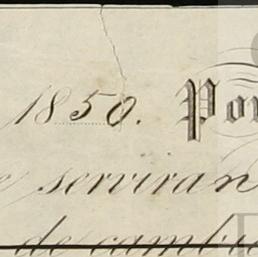 1850. Por
e serviran
de cambi